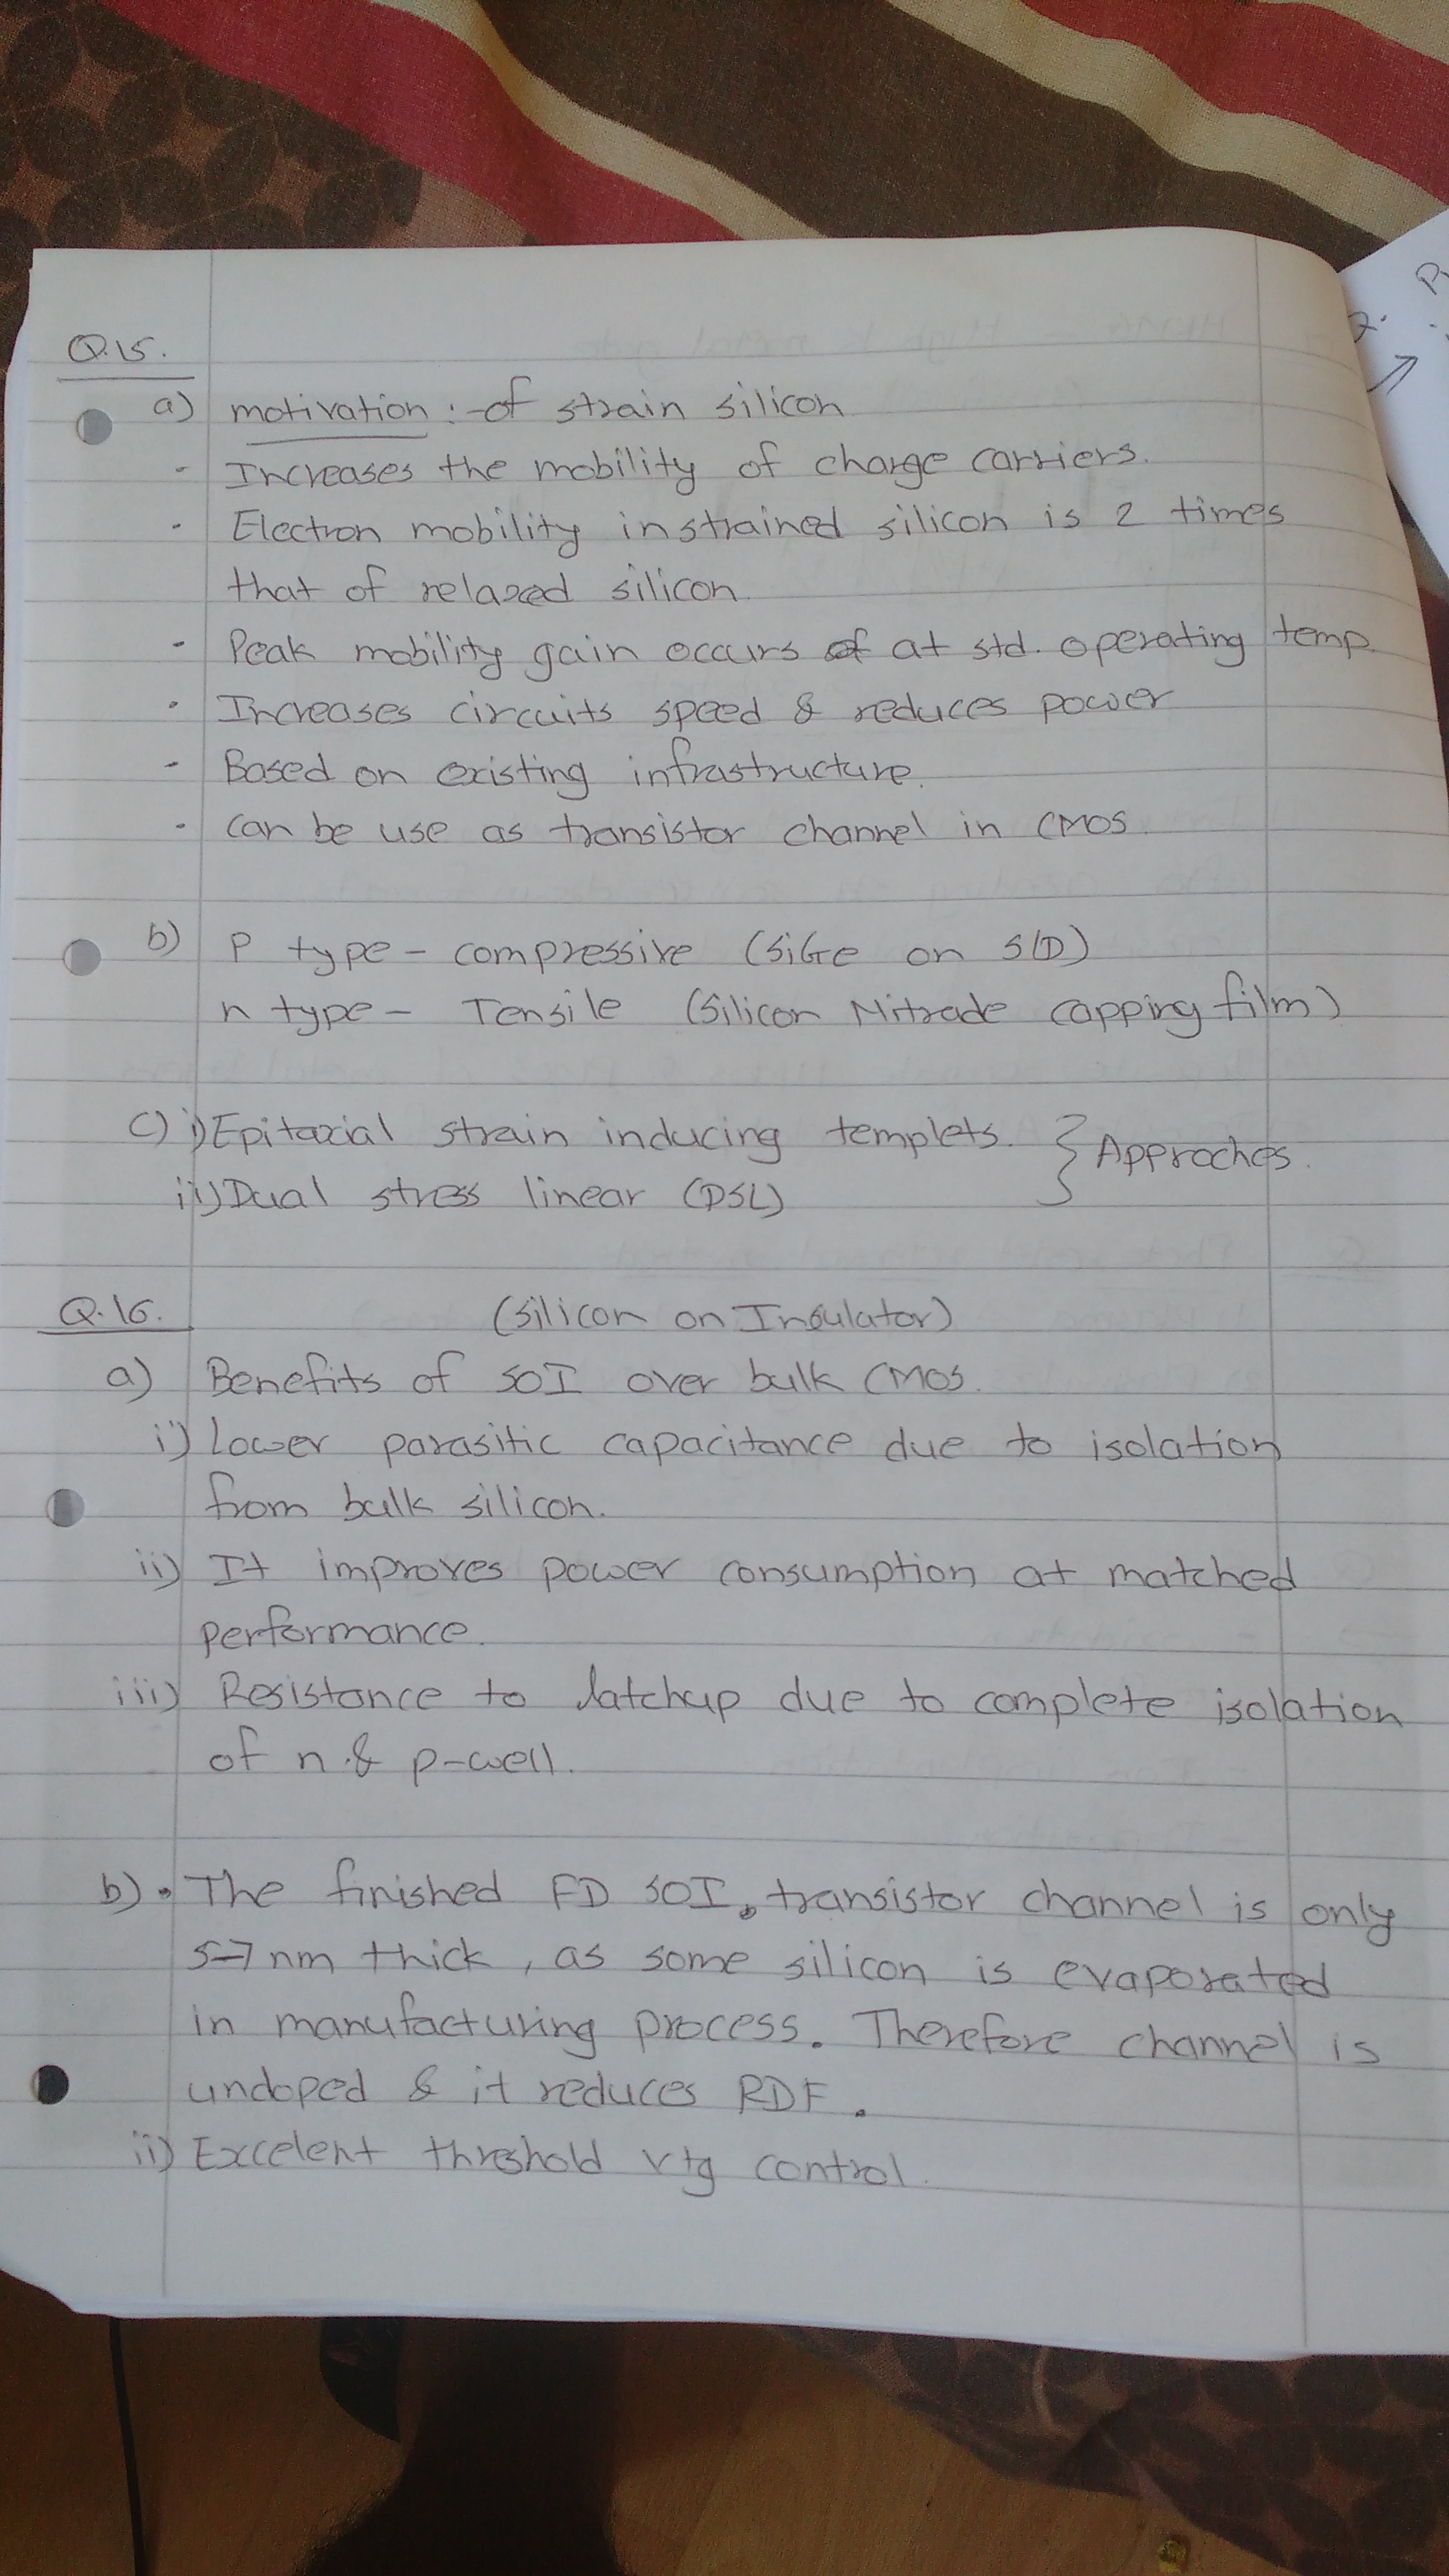 Q.15.
a) motivation :- of strain silicon
- Increases the mobility of charge carriers.
- Electron mobility in strained silicon is 2 times
that of relaxed silicon.
- Peak mobility gain occurs of at std. operating temp.
- Increases circuits speed & reduces power
- Based on existing infrastructure.
- can be use as transistor channel in CMOS.
b) P type - compressive (SiGe on S/D)
n type - Tensile (Silicon Nitrade capping film)
c) i) Epitaxial strain inducing templets. } Approches.
ii) Dual stress linear (DSL)
Q.16. (Silicon on Insulator)
a) Benefits of SOI over bulk CMOS.
i) Lower parasitic capacitance due to isolation
from bulk silicon.
ii) It improves power consumption at matched
performance.
iii) Resistance to latchup due to complete isolation
of n & p-well.
b) • The finished FD SOI, transistor channel is only
5-7 nm thick, as some silicon is evaporated
in manufacturing process. Therefore channel is
undoped & it reduces RDF.
ii) Excelent threshold vtg control.